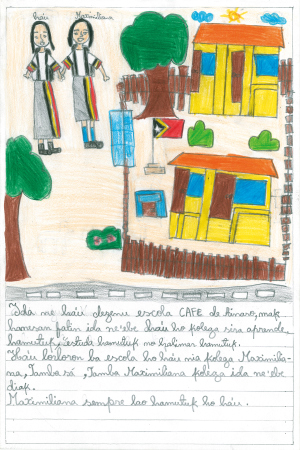 háu Maximiliana
Ida ne'e háu dezenu escola CAFE de Ainaro, mak
hanesan fatin ida ne'ebe háu ho kolega sira aprende
hamutuk, estuda hamutuk no halimar hamutuk.
Háu loroloron ba escola ho háu nia kolega Maximilia-
na, Tamba sá, Tamba Maximiliana kolega ida ne'ebe
diak.
Maximiliana sempre lao hamutuk ho háu.